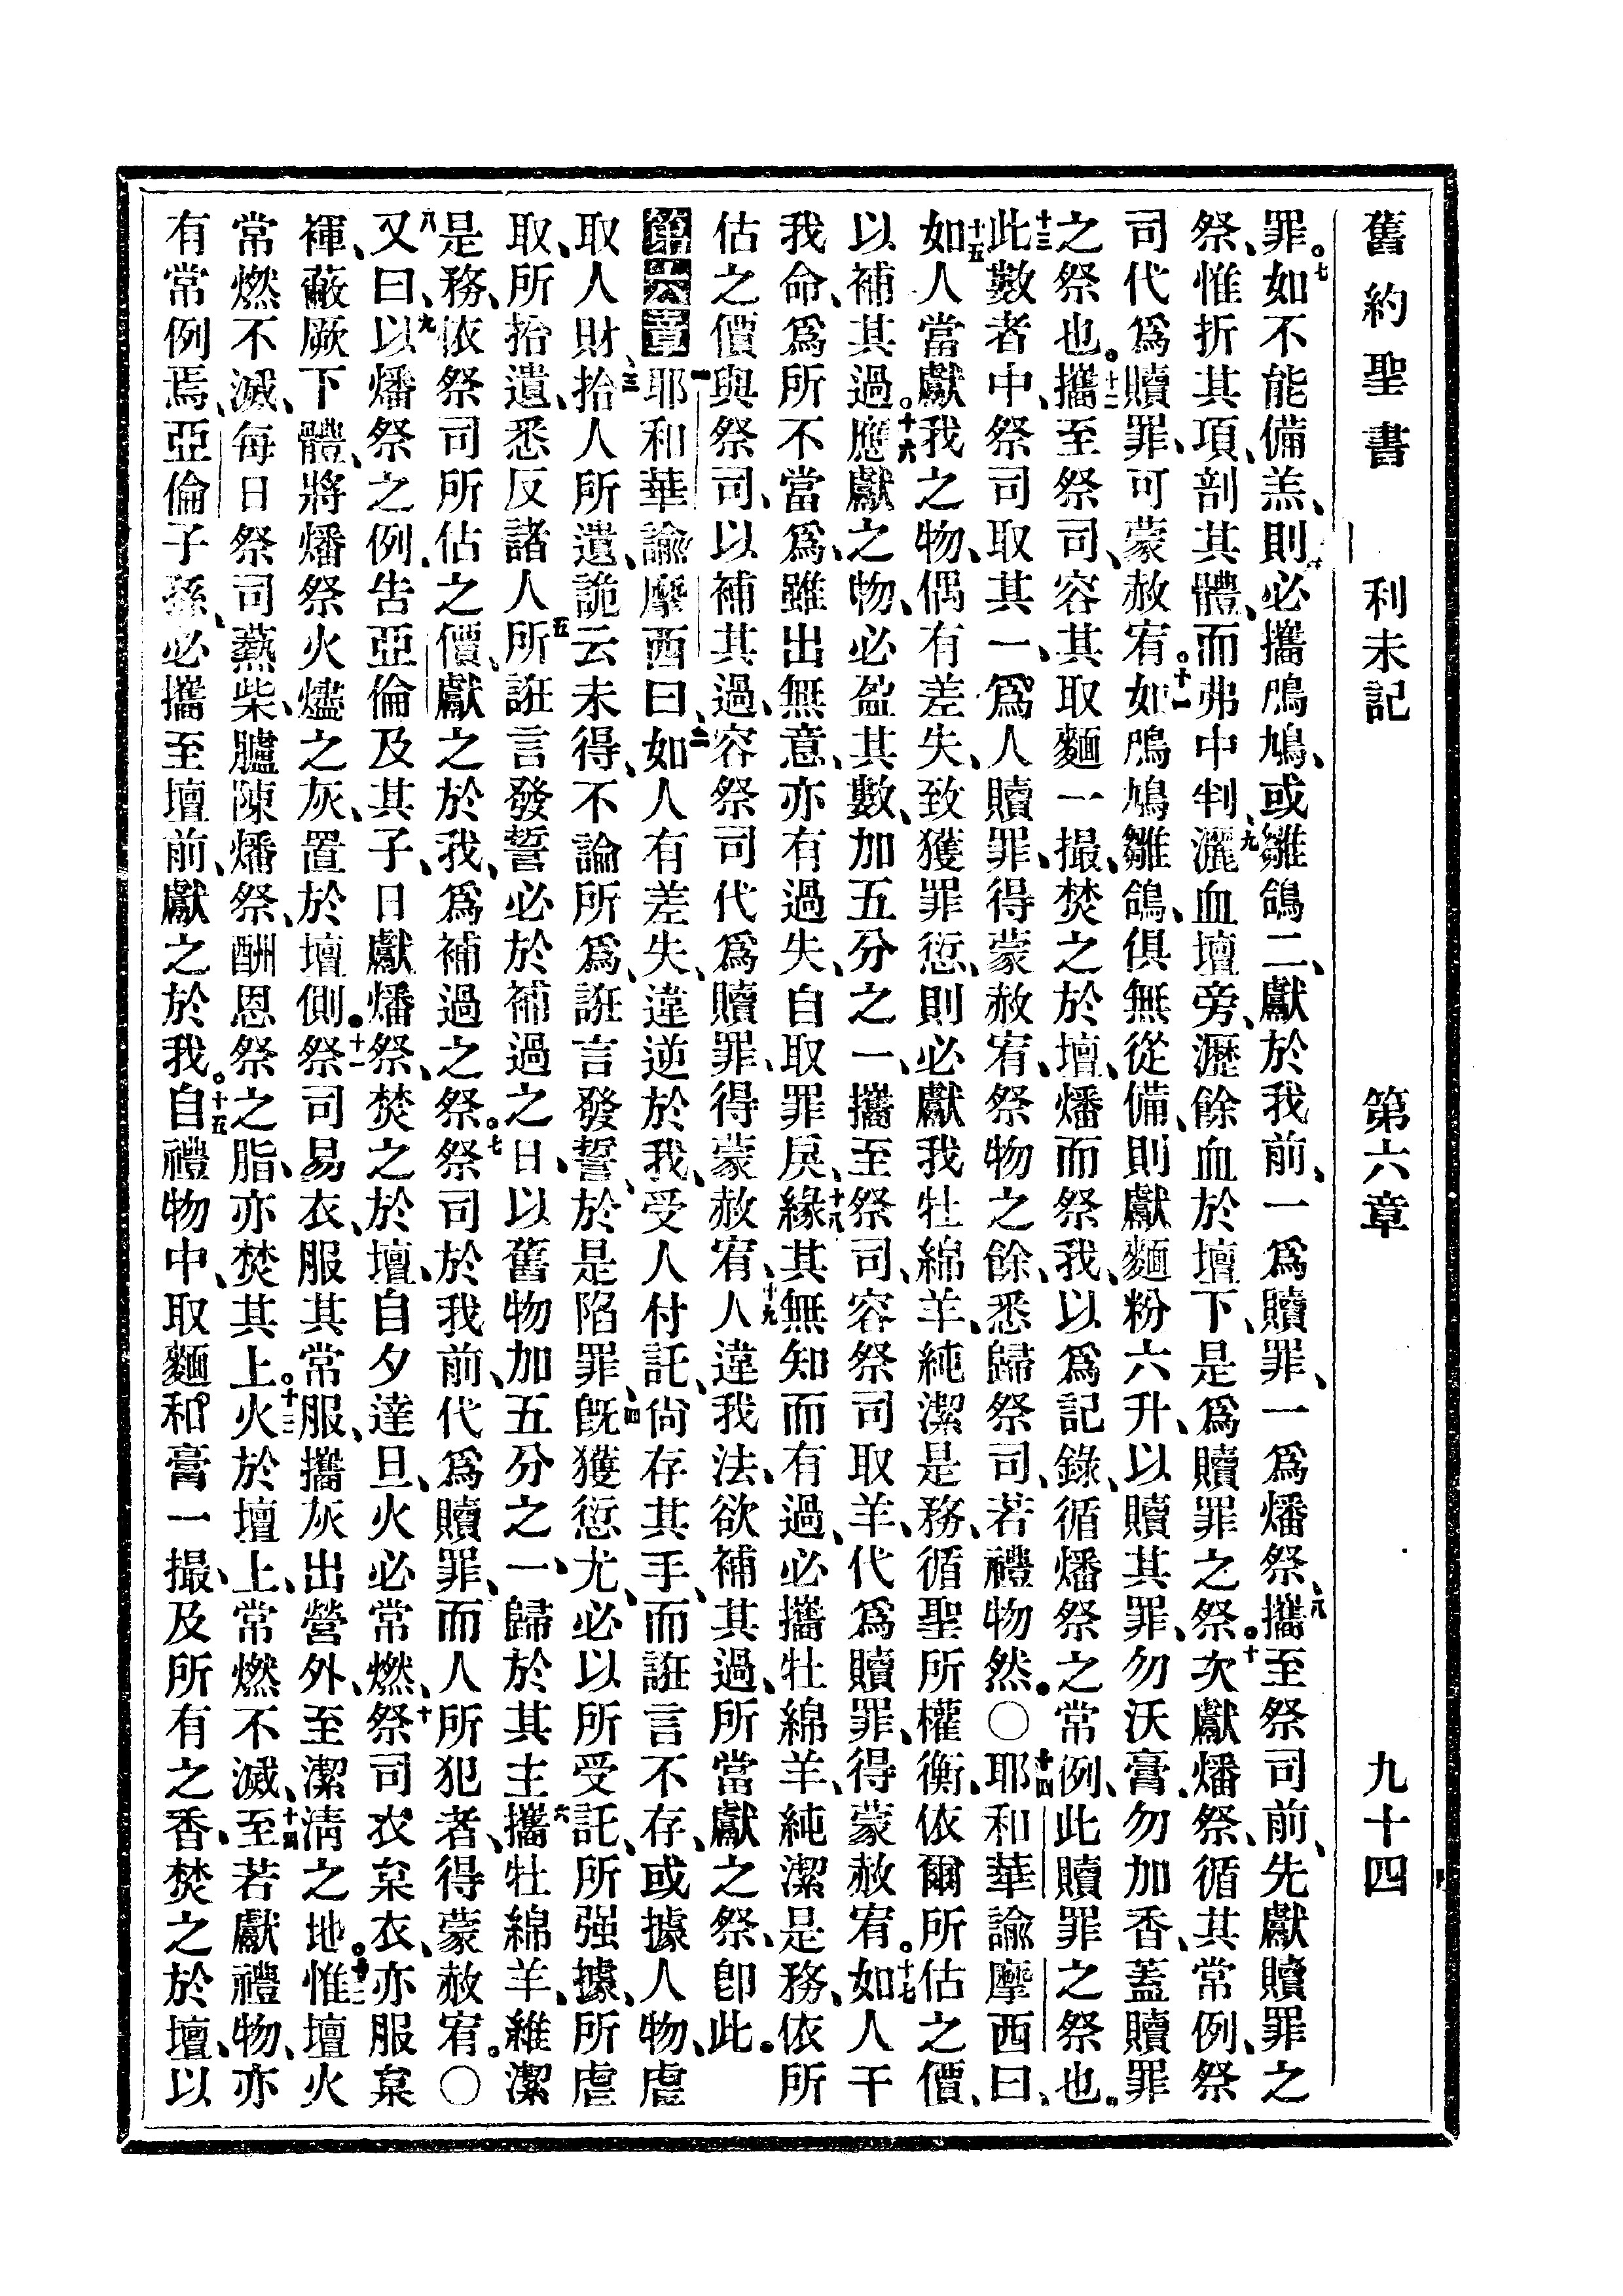 舊約聖書 利未記 第六章 九十四
罪。七如不能備羔、則必攜鳲鳩、或雛鴿二、獻於我前、一爲贖罪、一爲燔祭、八攜至祭司前、先獻贖罪之
祭、惟折其項、剖其體、而弗中判、九灑血壇旁、瀝餘血於壇下、是爲贖罪之祭。十次獻燔祭、循其常例、祭
司代爲贖罪、可蒙赦宥。十一如鳲鳩雛鴿、俱無從備、則獻麵粉六升、以贖其罪、勿沃膏、勿加香、蓋贖罪
之祭也。十二攜至祭司、容其取麵一撮、焚之於壇、燔而祭我、以爲記錄、循燔祭之常例、此贖罪之祭也。
十三此數者中、祭司取其一、爲人贖罪、得蒙赦宥、祭物之餘、悉歸祭司、若禮物然。○十四耶和華諭摩西曰、
十五如人當獻我之物、偶有差失、致獲罪愆、則必獻我牡綿羊、純潔是務、循聖所權衡、依爾所估之價、
以補其過。十六應獻之物、必盈其數、加五分之一、攜至祭司、容祭司取羊、代爲贖罪、得蒙赦宥。十七如人干
我命、爲所不當爲、雖出無意、亦有過失、自取罪戾、十八緣其無知而有過、必攜牡綿羊、純潔是務、依所
估之價與祭司、以補其過、容祭司代爲贖罪、得蒙赦宥、十九人違我法、欲補其過、所當獻之祭、卽此。
第六章 一耶和華諭摩西曰、二如人有差失、違逆於我、受人付託、尙存其手、而誑言不存、或據人物、虐
取人財、三拾人所遺、詭云未得、不論所爲、誑言發誓、於是陷罪、四旣獲愆尤、必以所受託、所强據、所虐
取、所拾遺、悉反諸人、五所誑言發誓、必於補過之日、以舊物加五分之一、歸於其主、六攜牡綿羊、維潔
是務、依祭司所估之價、獻之於我、爲補過之祭。七祭司於我前、代爲贖罪、而人所犯者、得蒙赦宥。○
八又曰、九以燔祭之例、告亞倫及其子、日獻燔祭、焚之於壇、自夕達旦、火必常燃、十祭司衣枲衣、亦服枲
褌、蔽厥下體、將燔祭火燼之灰、置於壇側。十一祭司易衣、服其常服、攜灰出營外、至潔淸之地。十二惟壇火
常燃不滅、每日祭司爇柴、臚陳燔祭、酬恩祭之脂、亦焚其上。十三火於壇上、常燃不滅、十四至若獻禮物、亦
有常例焉、亞倫子孫、必攜至壇前、獻之於我。十五自禮物中、取麵和膏一撮、及所有之香、焚之於壇、以